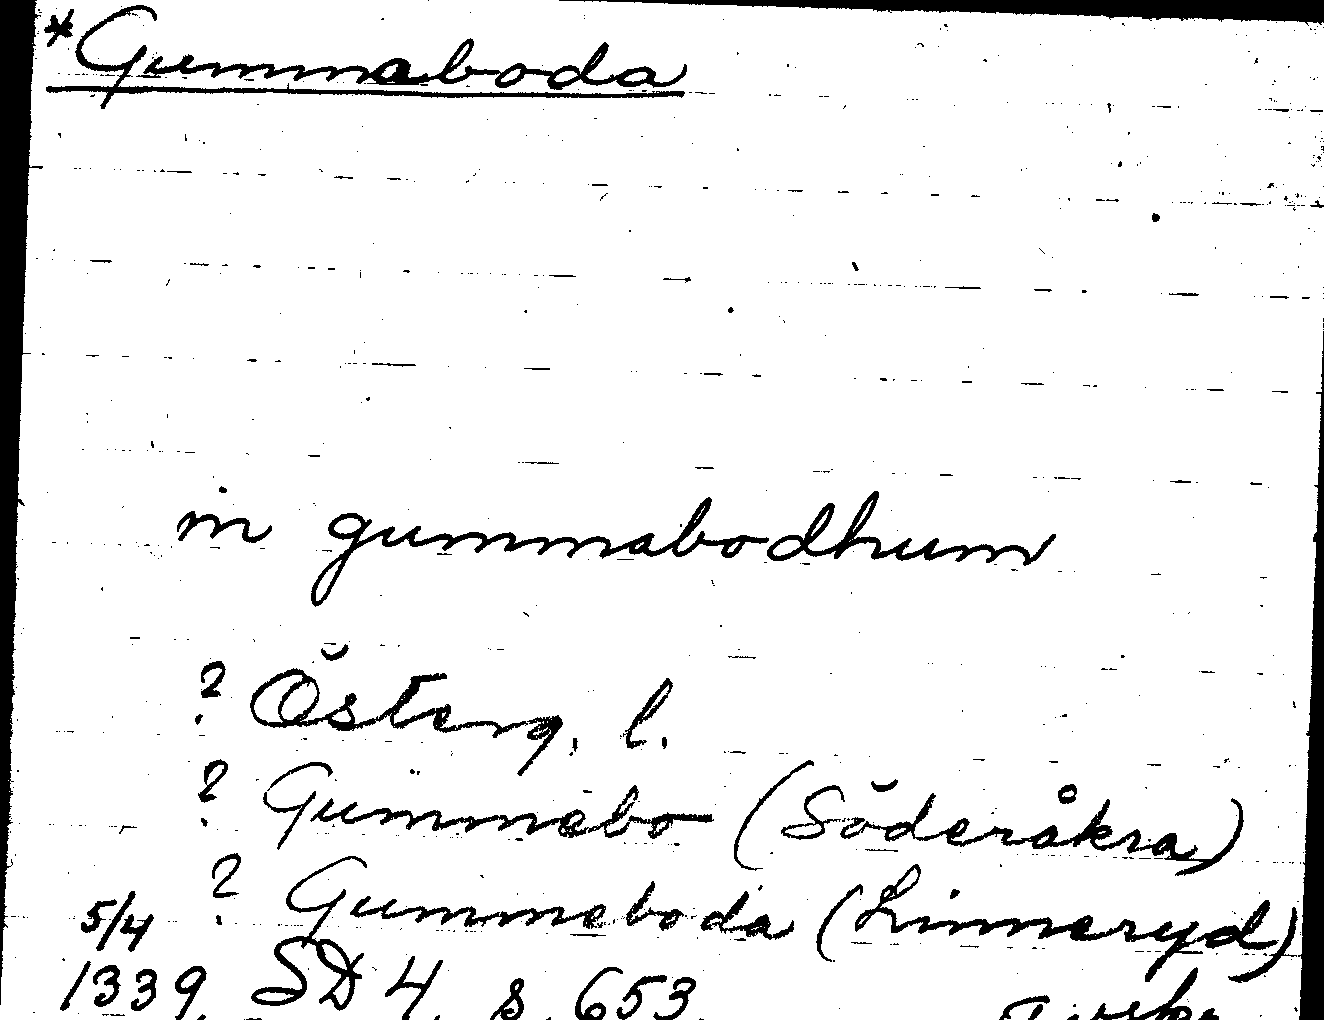 *Gummaboda
in gummabodhum
? Österg. l.
? Gummebo (Söderåkra)
? Gummeboda (Linneryd)
5/4
1339. SD 4, s. 653.